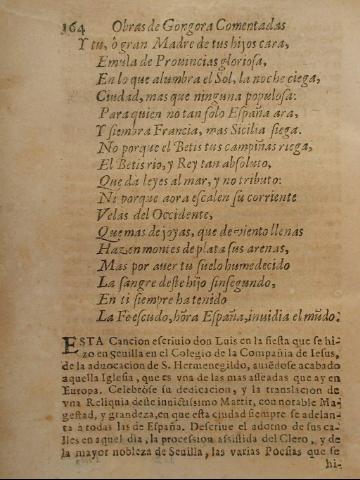 164 Obras de Gongora Comentadas
Y tu, ò gran Madre de tus hijos cara,
Emula de Prouincias gloriosa,
En lo que alumbra el Sol, la noche ciega,
Ciudad, mas que ninguna populosa:
Para quien no tan solo España ara,
Y siembra Francia, mas Sicilia siega.
No porque el Betis tus campiñas riega,
El Betis rio, y Rey tan absoluto,
Que da leyes al mar, y no tributo:
Ni porque aora escalen su corriente
Velas del Occidente,
Que mas de joyas, que de viento llenas
Hazen montes de plata sus arenas,
Mas por auer tu suelo humedecido
La sangre deste hijo sin segundo,
En ti siempre ha tenido
La Fe escudo, hõra España, inuidia el mũdo.
ESTA Cancion escriuio don Luis en la fiesta que se hi-
zo en Seuilla en el Colegio de la Compañia de Iesus,
de la aduocacion de S. Hermenegildo, auiẽdose acabado
aquella Iglesia, que es vna de las mas asseadas que ay en
Europa. Celebròse su dedicacion, y la translacion de
vna Reliquia deste inuictissimo Martir, con notable Ma-
gestad, y grandeza, en que esta ciudad siempre se adelan-
ta à todas las de España. Descriue el adorno de sus ca-
lles en aquel dia, la procession assistida del Clero, y de
la mayor nobleza de Seuilla, las varias Poesias que se
hi-